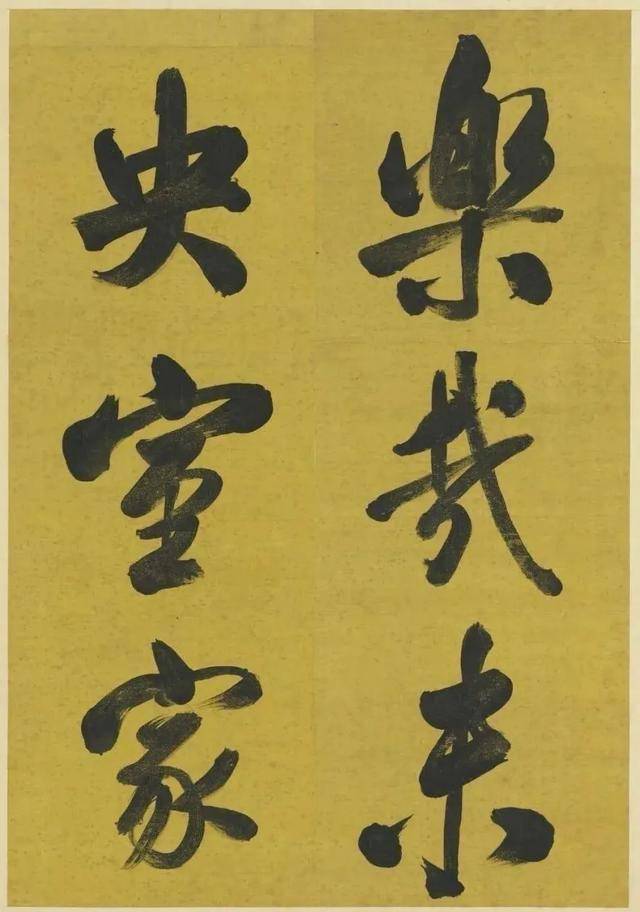 樂哉未
央室家